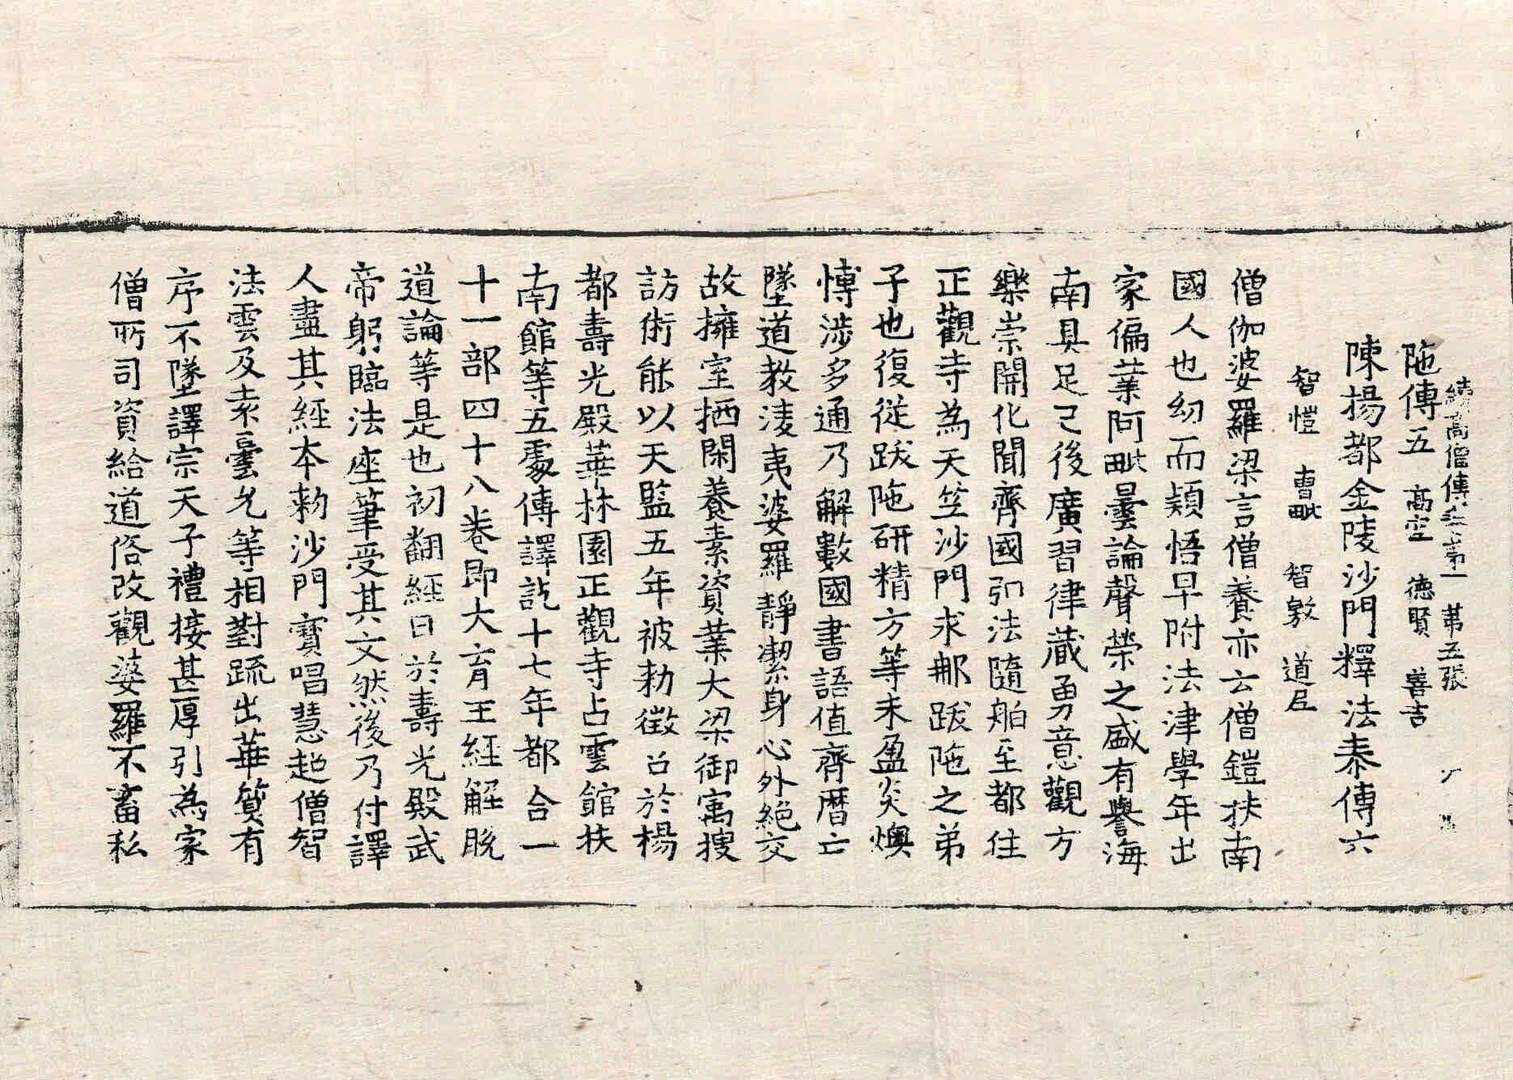 續高僧傳卷第一 第五張
陁傳五 高空 德賢 善吉
陳揚都金陵沙門釋法泰傳六
智愷 曹毗 智敫 道尼
僧伽婆羅梁言僧養亦云僧鎧扶南
國人也幼而穎悟早附法津學年出
家偏業阿毗曇論聲榮之盛有譽海
南具足已後廣習律藏勇意觀方
樂崇開化聞齊國弘法隨舶至都住
正觀寺為天竺沙門求那跋陁之弟
子也復從跋陁研精方等未盈炎燠
博涉多通乃解數國書語值齊曆亡
墜道教淩夷婆羅靜潔身心外絕交
故擁室栖閑養素資業大梁御寓搜
訪術能以天監五年被勑徵召於楊
都壽光殿華林園正觀寺占雲館扶
南館等五處傳譯訖十七年都合一
十一部四十八卷即大育王經解脫
道論等是也初翻經日於壽光殿武
帝躬臨法座筆受其文然後乃付譯
人盡其經本勑沙門寶唱慧超僧智
法雲及袁曇允等相對疏出華質有
序不墜譯宗天子禮接甚厚引為家
僧所司資給道俗改觀婆羅不畜私